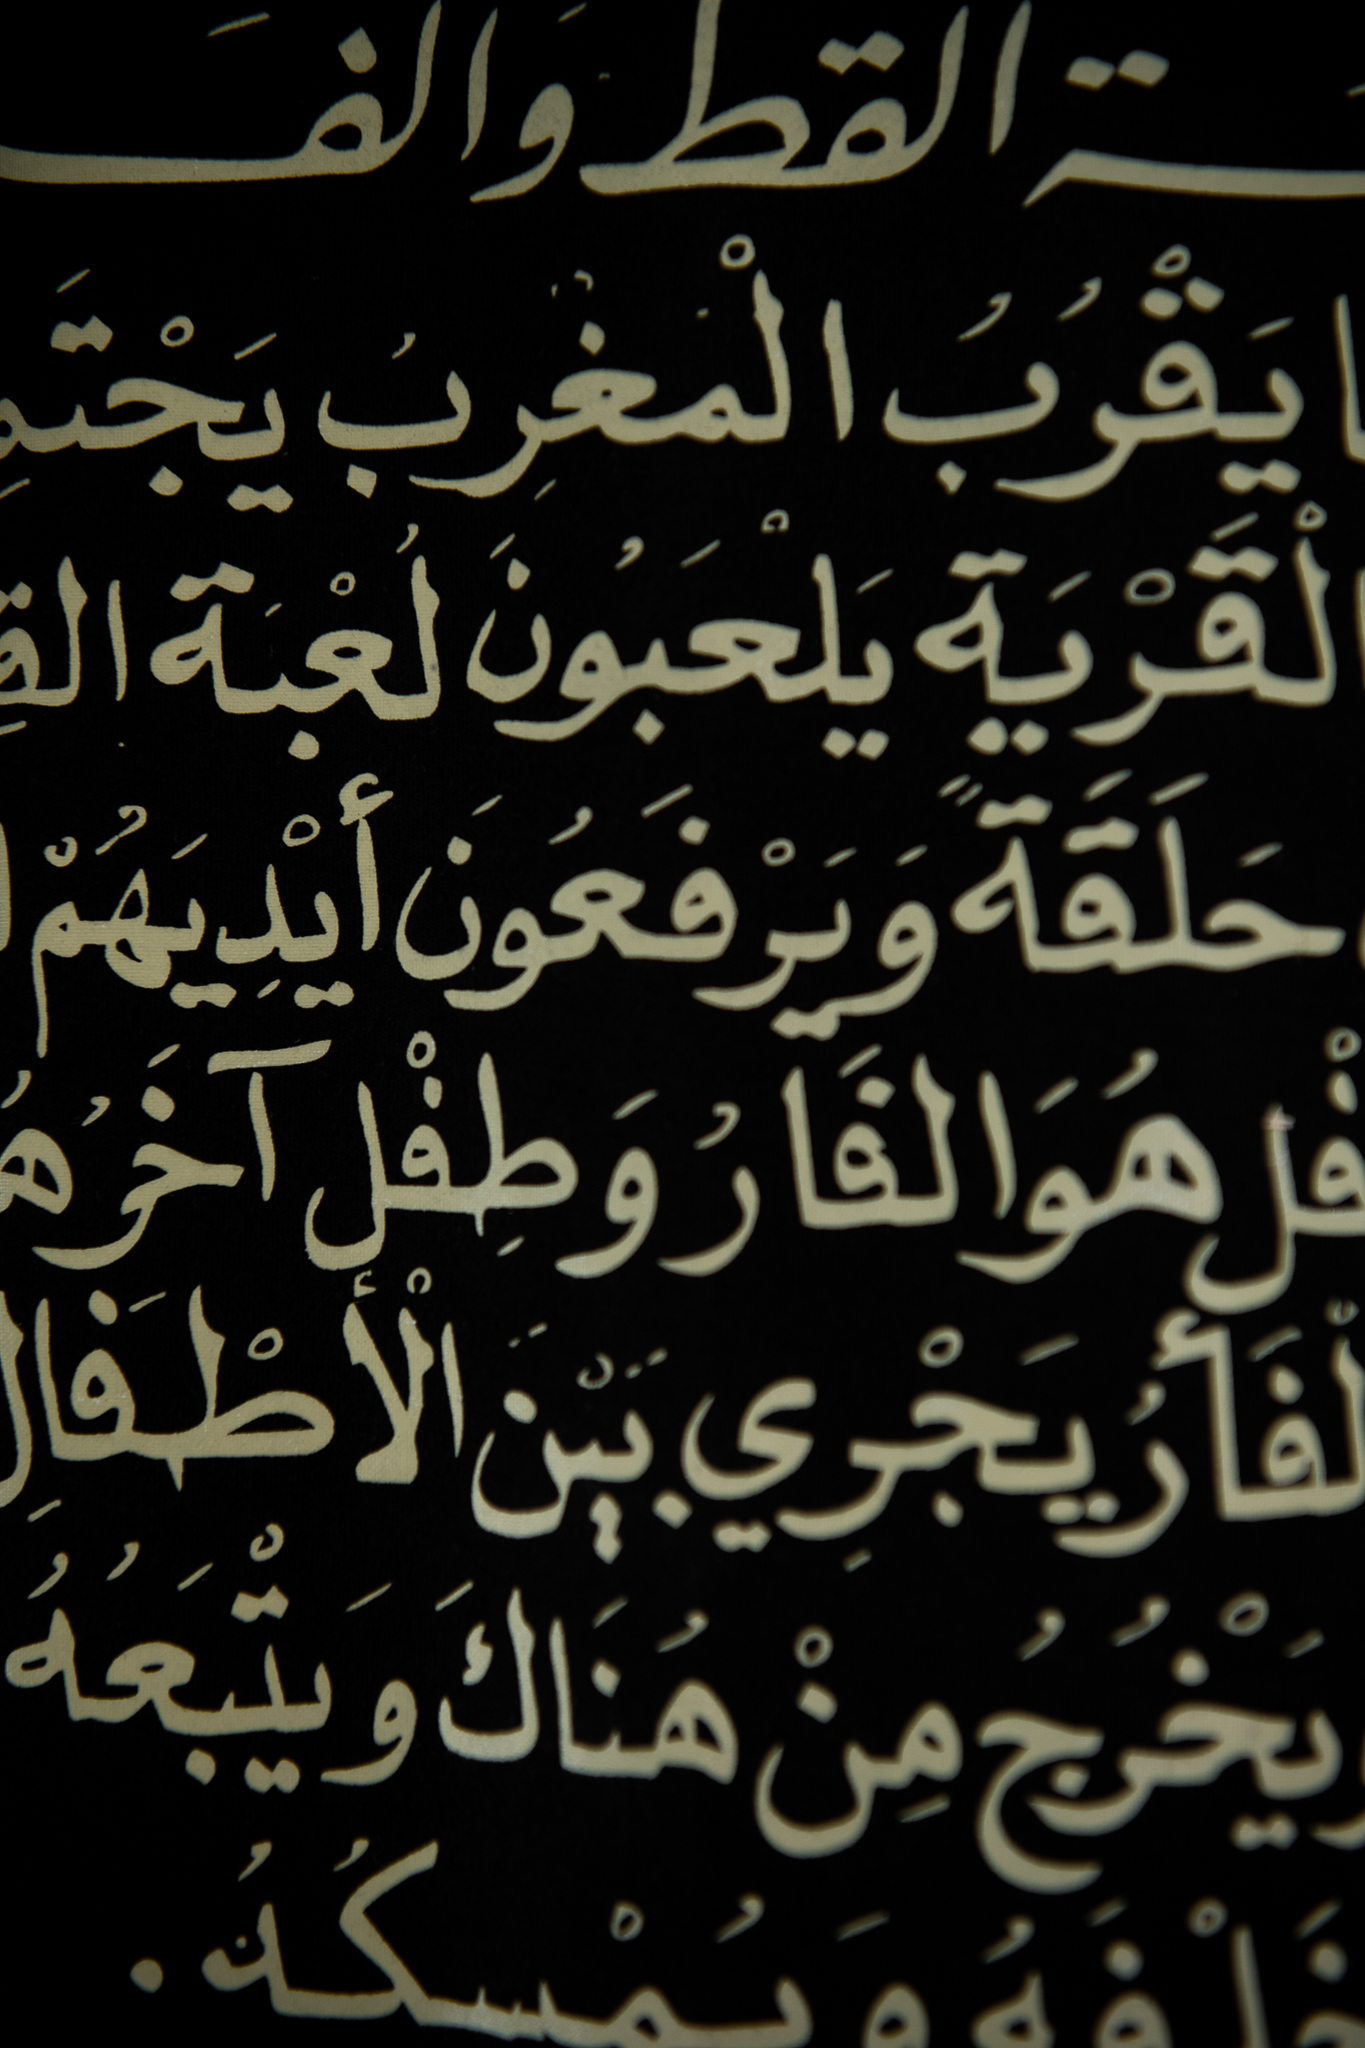 ـة القط والفـ
يَقْرُبُ الْمَغْرِبُ يَجْتَمِـ
الْقَرْيَةِ يَلْعَبُونَ لُعْبَةَ القِـ
حَلَقَةً وَيَرْفَعُونَ أَيْدِيَهُمْ
ـفْل هُوَ الفَارُ وَطِفْل آخَرُ هُـ
لْفَأرُ يَجْرِي بَيْنَ الْأطْفَالِ
يَخْرُجُ مِنْ هُنَاكَ وَيَتْبَعُهُ
خَلْفَهُ وَيُمْسكُهُ .